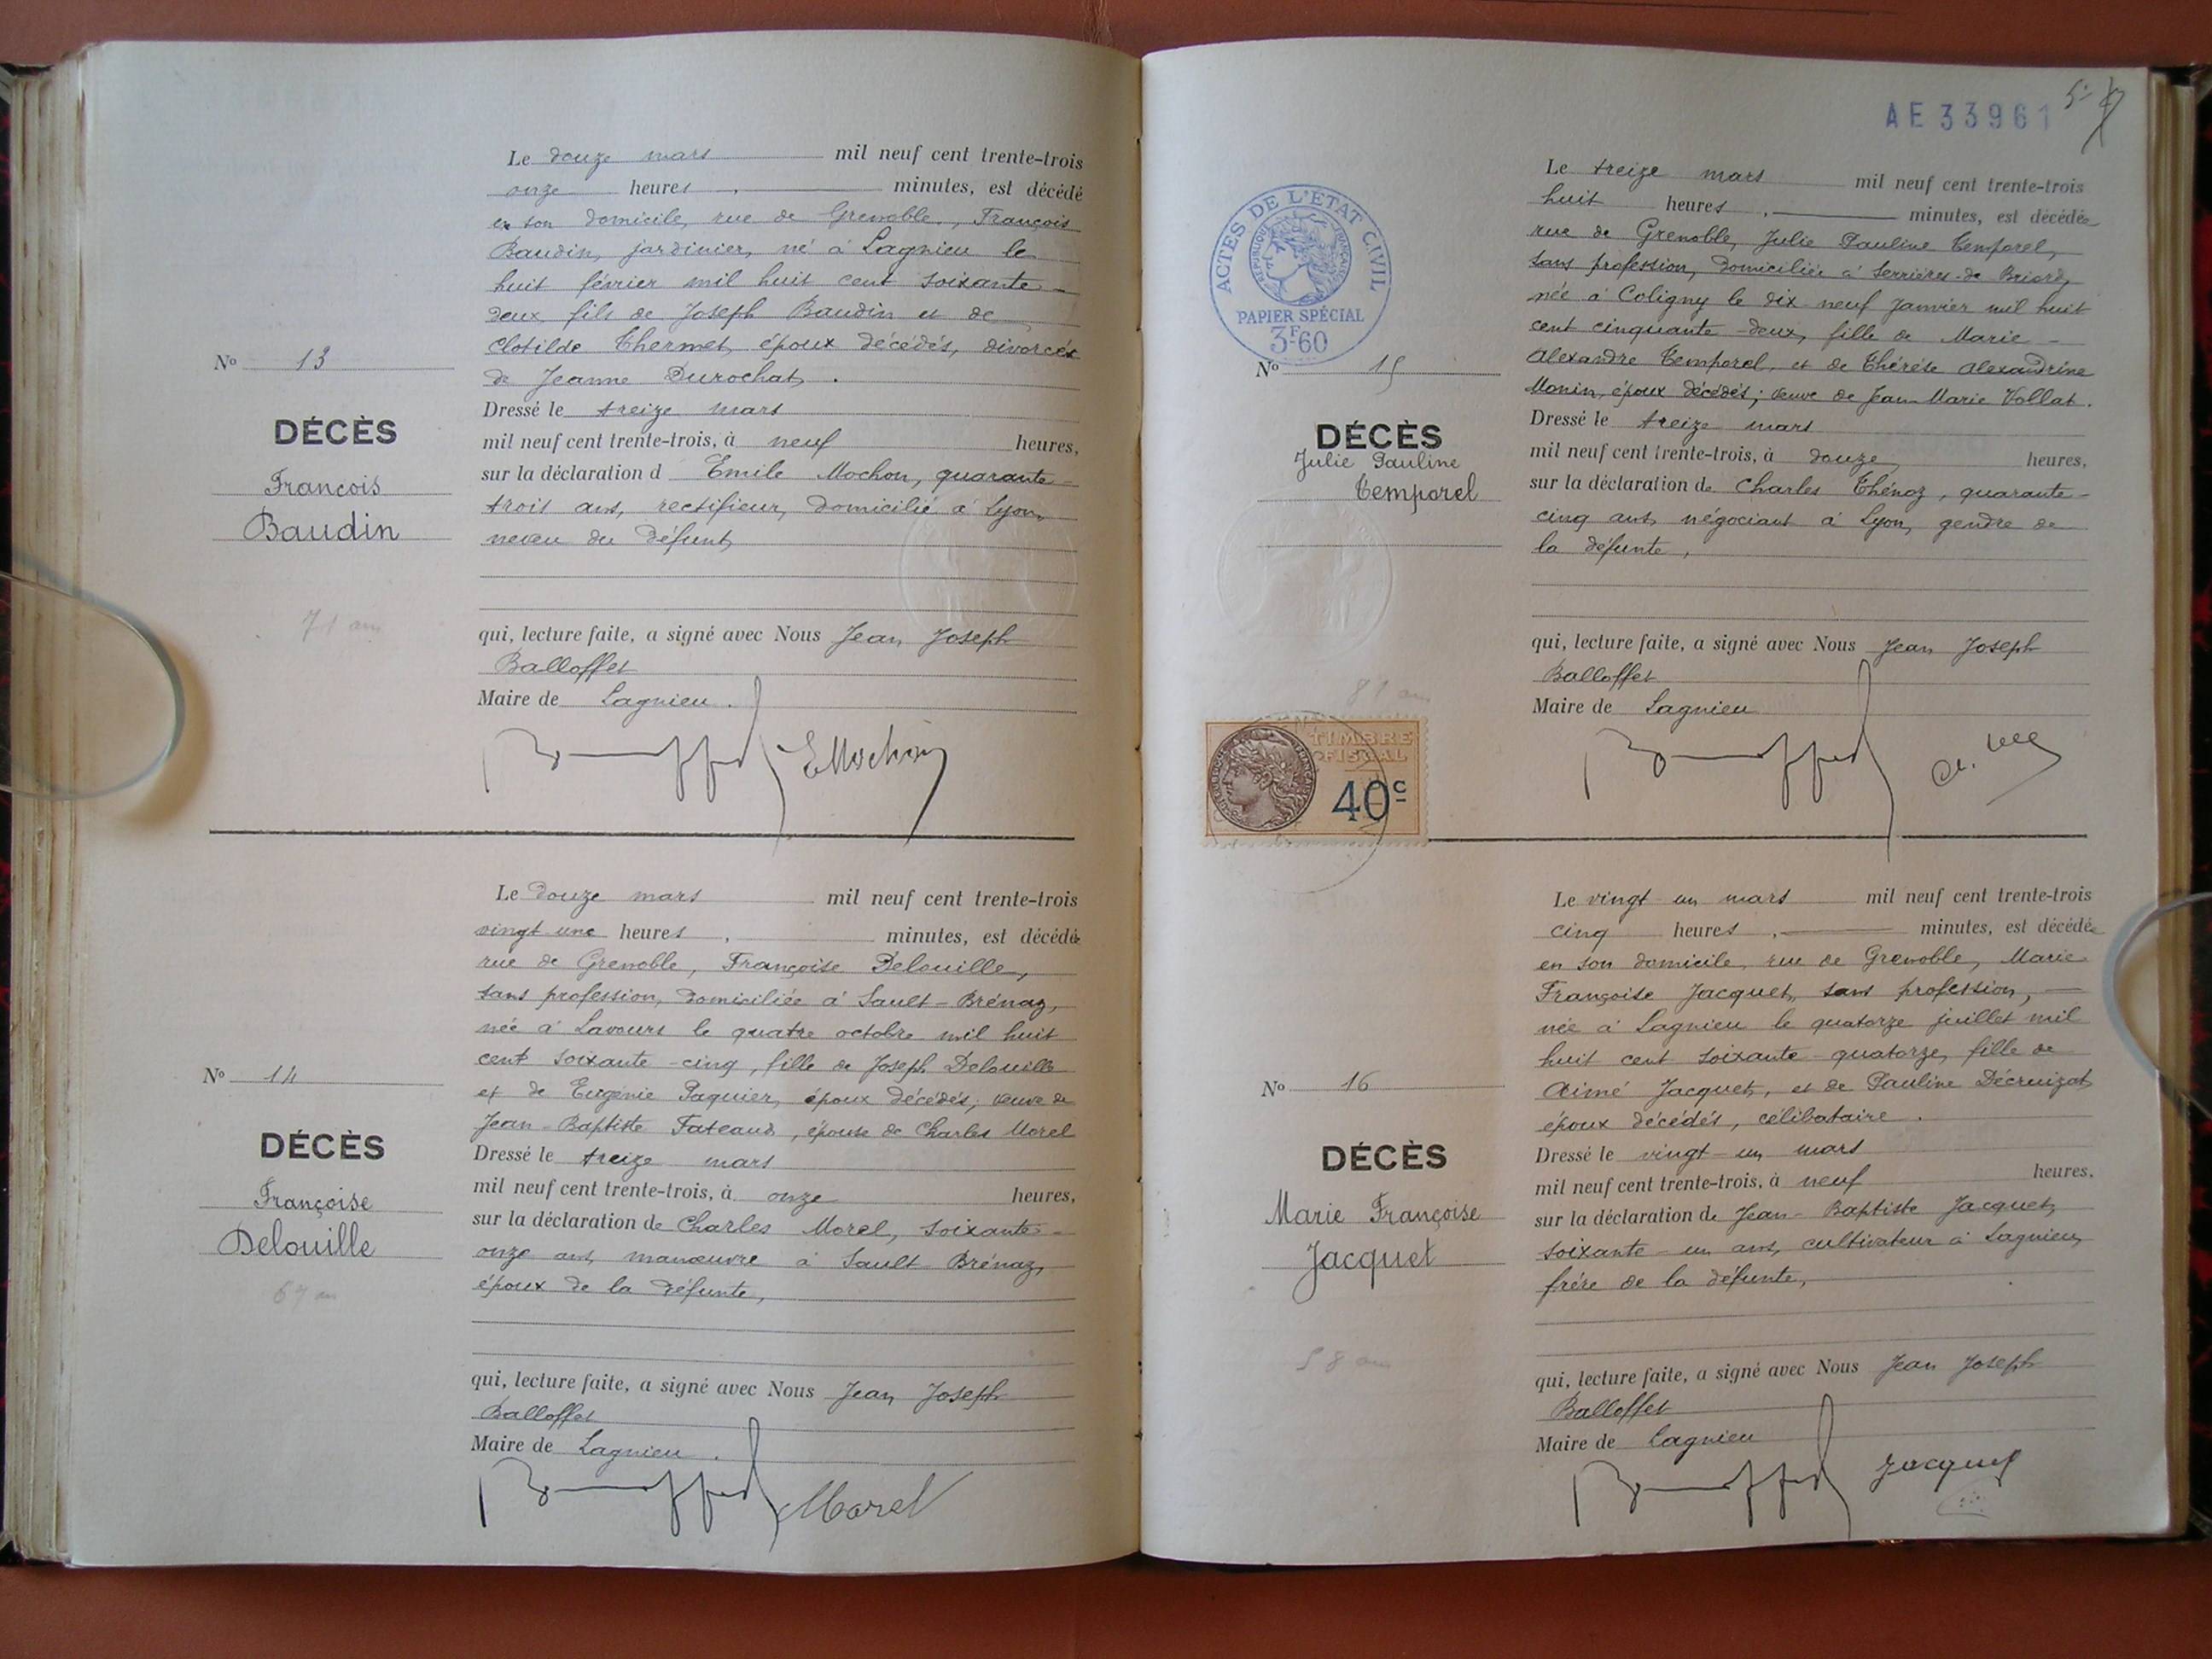 Le douze mars mil neuf cent trente-trois
onze heures, minutes, est décédé
en son domicile, rue de Grenoble, François
Baudin, jardinier, né à Lagnieu le
huit février mil huit cent soixante
deux, fils de Joseph Baudin et de
Clotilde Thermet, époux décédés, divorcés
de Jeanne Durochat.
Nº 13
DÉCÈS
François
Baudin
71 ans
Dressé le treize mars
mil neuf cent trente-trois, à neuf heures,
sur la déclaration d Emile Mochon, quarante-
trois ans, rectifieur, domicilié à Lyon,
neveu du défunt,
qui, lecture faite, a signé avec Nous Jean Joseph
Balloffet
Maire de Lagnieu.
EMochon
Le douze mars mil neuf cent trente-trois
vingt une heures, minutes, est décédée
rue de Grenoble, Françoise Delouille,
sans profession, domiciliée à Sault-Brénaz,
née à Lavours le quatre octobre mil huit
cent soixante-cinq, fille de Joseph Delouille
et de Eugénie Paquier, époux décédés; veuve de
Jean-Baptiste Fateaud, épouse de Charles Morel
Nº 14
DÉCÈS
Françoise
Delouille
67 ans
Dressé le treize mars
mil neuf cent trente-trois, à onze heures,
sur la déclaration de Charles Morel, soixante-
onze ans, manœuvre à Sault-Brénaz,
époux de la défunte,
qui, lecture faite, a signé avec Nous Jean Joseph
Balloffet
Maire de Lagnieu.
Morel
AE 33961
5
ACTES DE L'ETAT CIVIL
RÉPUBLIQUE FRANÇAISE
PAPIER SPÉCIAL
3F60
Le treize mars mil neuf cent trente-trois
huit heures, minutes, est décédée
rue de Grenoble, Julie Pauline Temporel,
sans profession, domiciliée à Serrières-de-Briord,
née à Coligny le dix-neuf Janvier mil huit
cent cinquante-deux, fille de Marie-
Alexandre Temporel, et de Thérèse Alexandrine
Monin, époux décédés; veuve de Jean-Marie Vollat.
Nº 15
DÉCÈS
Julie Pauline
Temporel
81 ans
Dressé le treize mars
mil neuf cent trente-trois, à douze heures,
sur la déclaration de Charles Thénoz, quarante-
cinq ans, négociant à Lyon, gendre de
la défunte,
qui, lecture faite, a signé avec Nous Jean Joseph
Balloffet
Maire de Lagnieu
TIMBRE
FISCAL
40c
Le vingt un mars mil neuf cent trente-trois
cinq heures, minutes, est décédée
en son domicile, rue de Grenoble, Marie
Françoise Jacquet, sans profession,
née à Lagnieu le quatorze juillet mil
huit cent soixante-quatorze, fille de
Aimé Jacquet, et de Pauline Décruizat
époux décédés, célibataire.
Nº 16
DÉCÈS
Marie Françoise
Jacquet
58 ans
Dressé le vingt-un mars
mil neuf cent trente-trois, à neuf heures,
sur la déclaration de Jean-Baptiste Jacquet,
soixante-un ans, cultivateur à Lagnieu,
frère de la défunte,
qui, lecture faite, a signé avec Nous Jean Joseph
Balloffet
Maire de Lagnieu
Jacquet